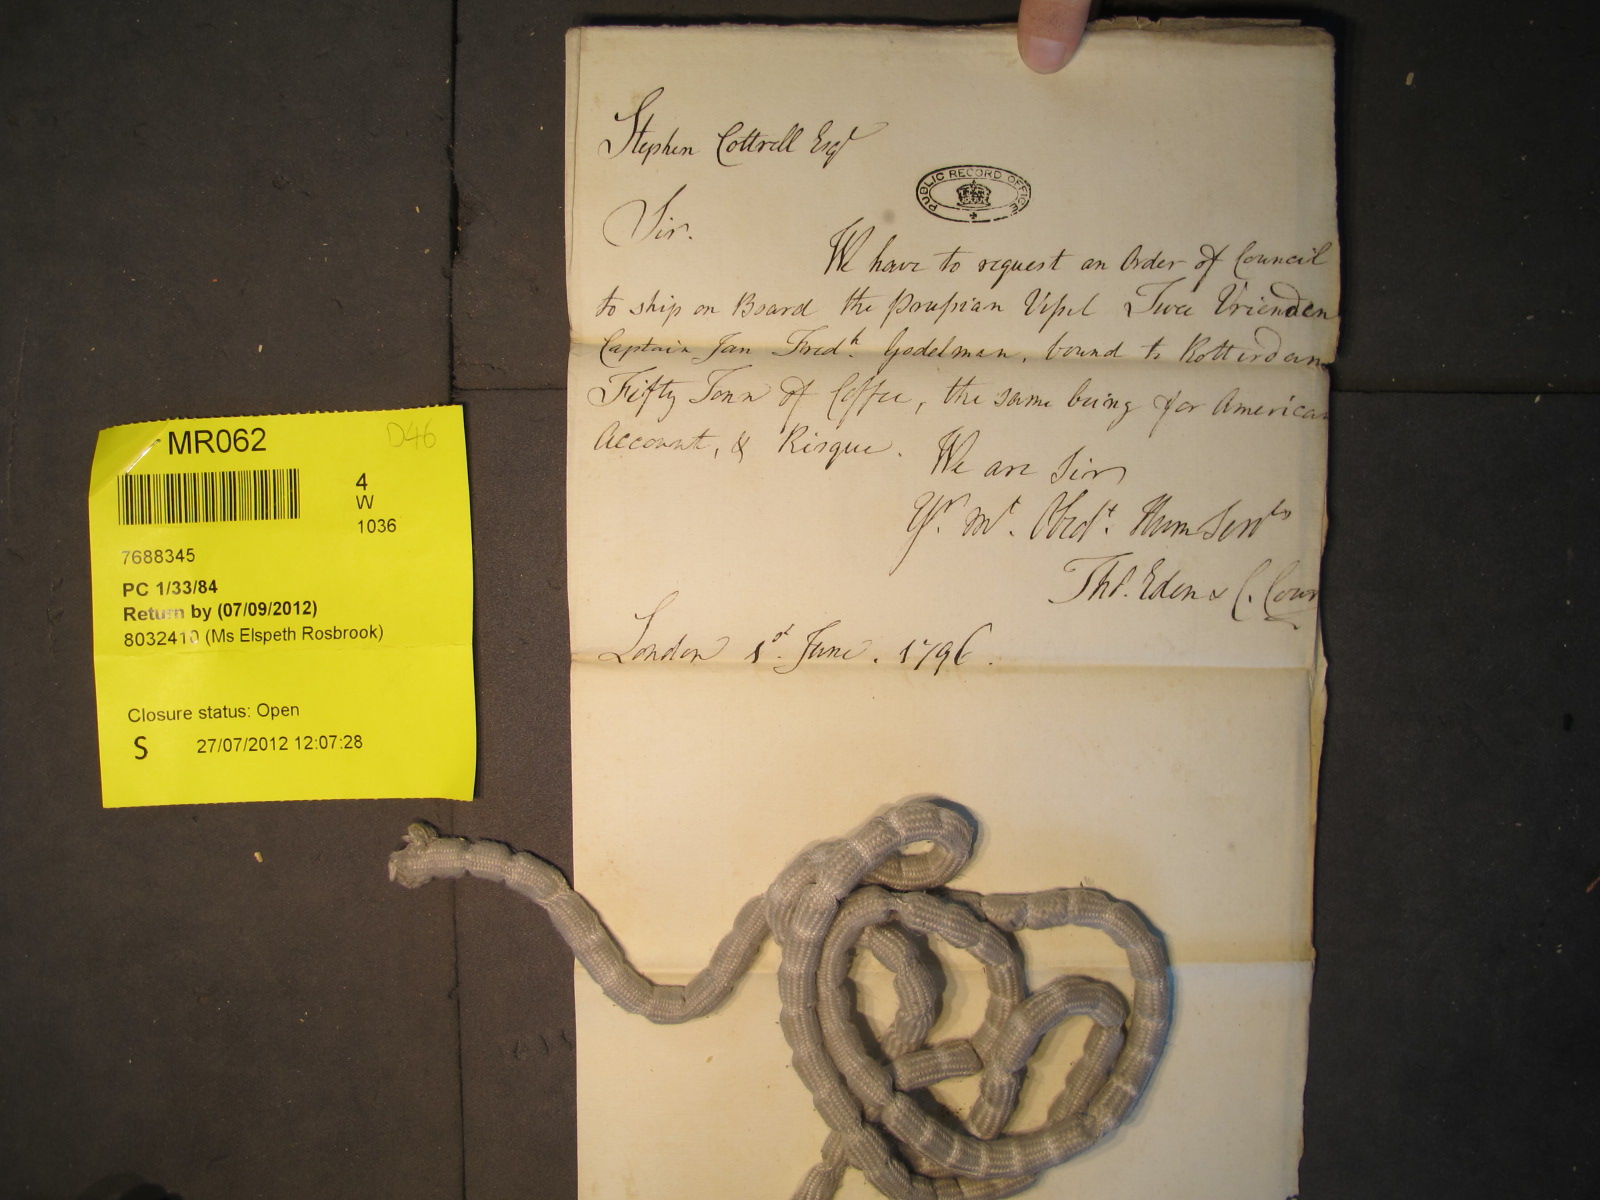 Stephen Cottrell Esqr
PUBLIC RECORD OFFICE
Sir.
We have to request an Order of Council
to ship on Board the Prussian Vessel Twee Vrienden
Captain Jan Fredk. Godelman, bound to Rotterdam
Fifty Tonn of Coffee, the same being for American
Account, & Risque.
We are Sir
Yr. Mt. Obedt. Hum Servts
Thos. Eden &
London 1st June. 1796.
MR062
D46
4
W
1036
7688345
PC 1/33/84
Return by (07/09/2012)
8032410 (Ms Elspeth Rosbrook)
Closure status: Open
S 27/07/2012 12:07:28